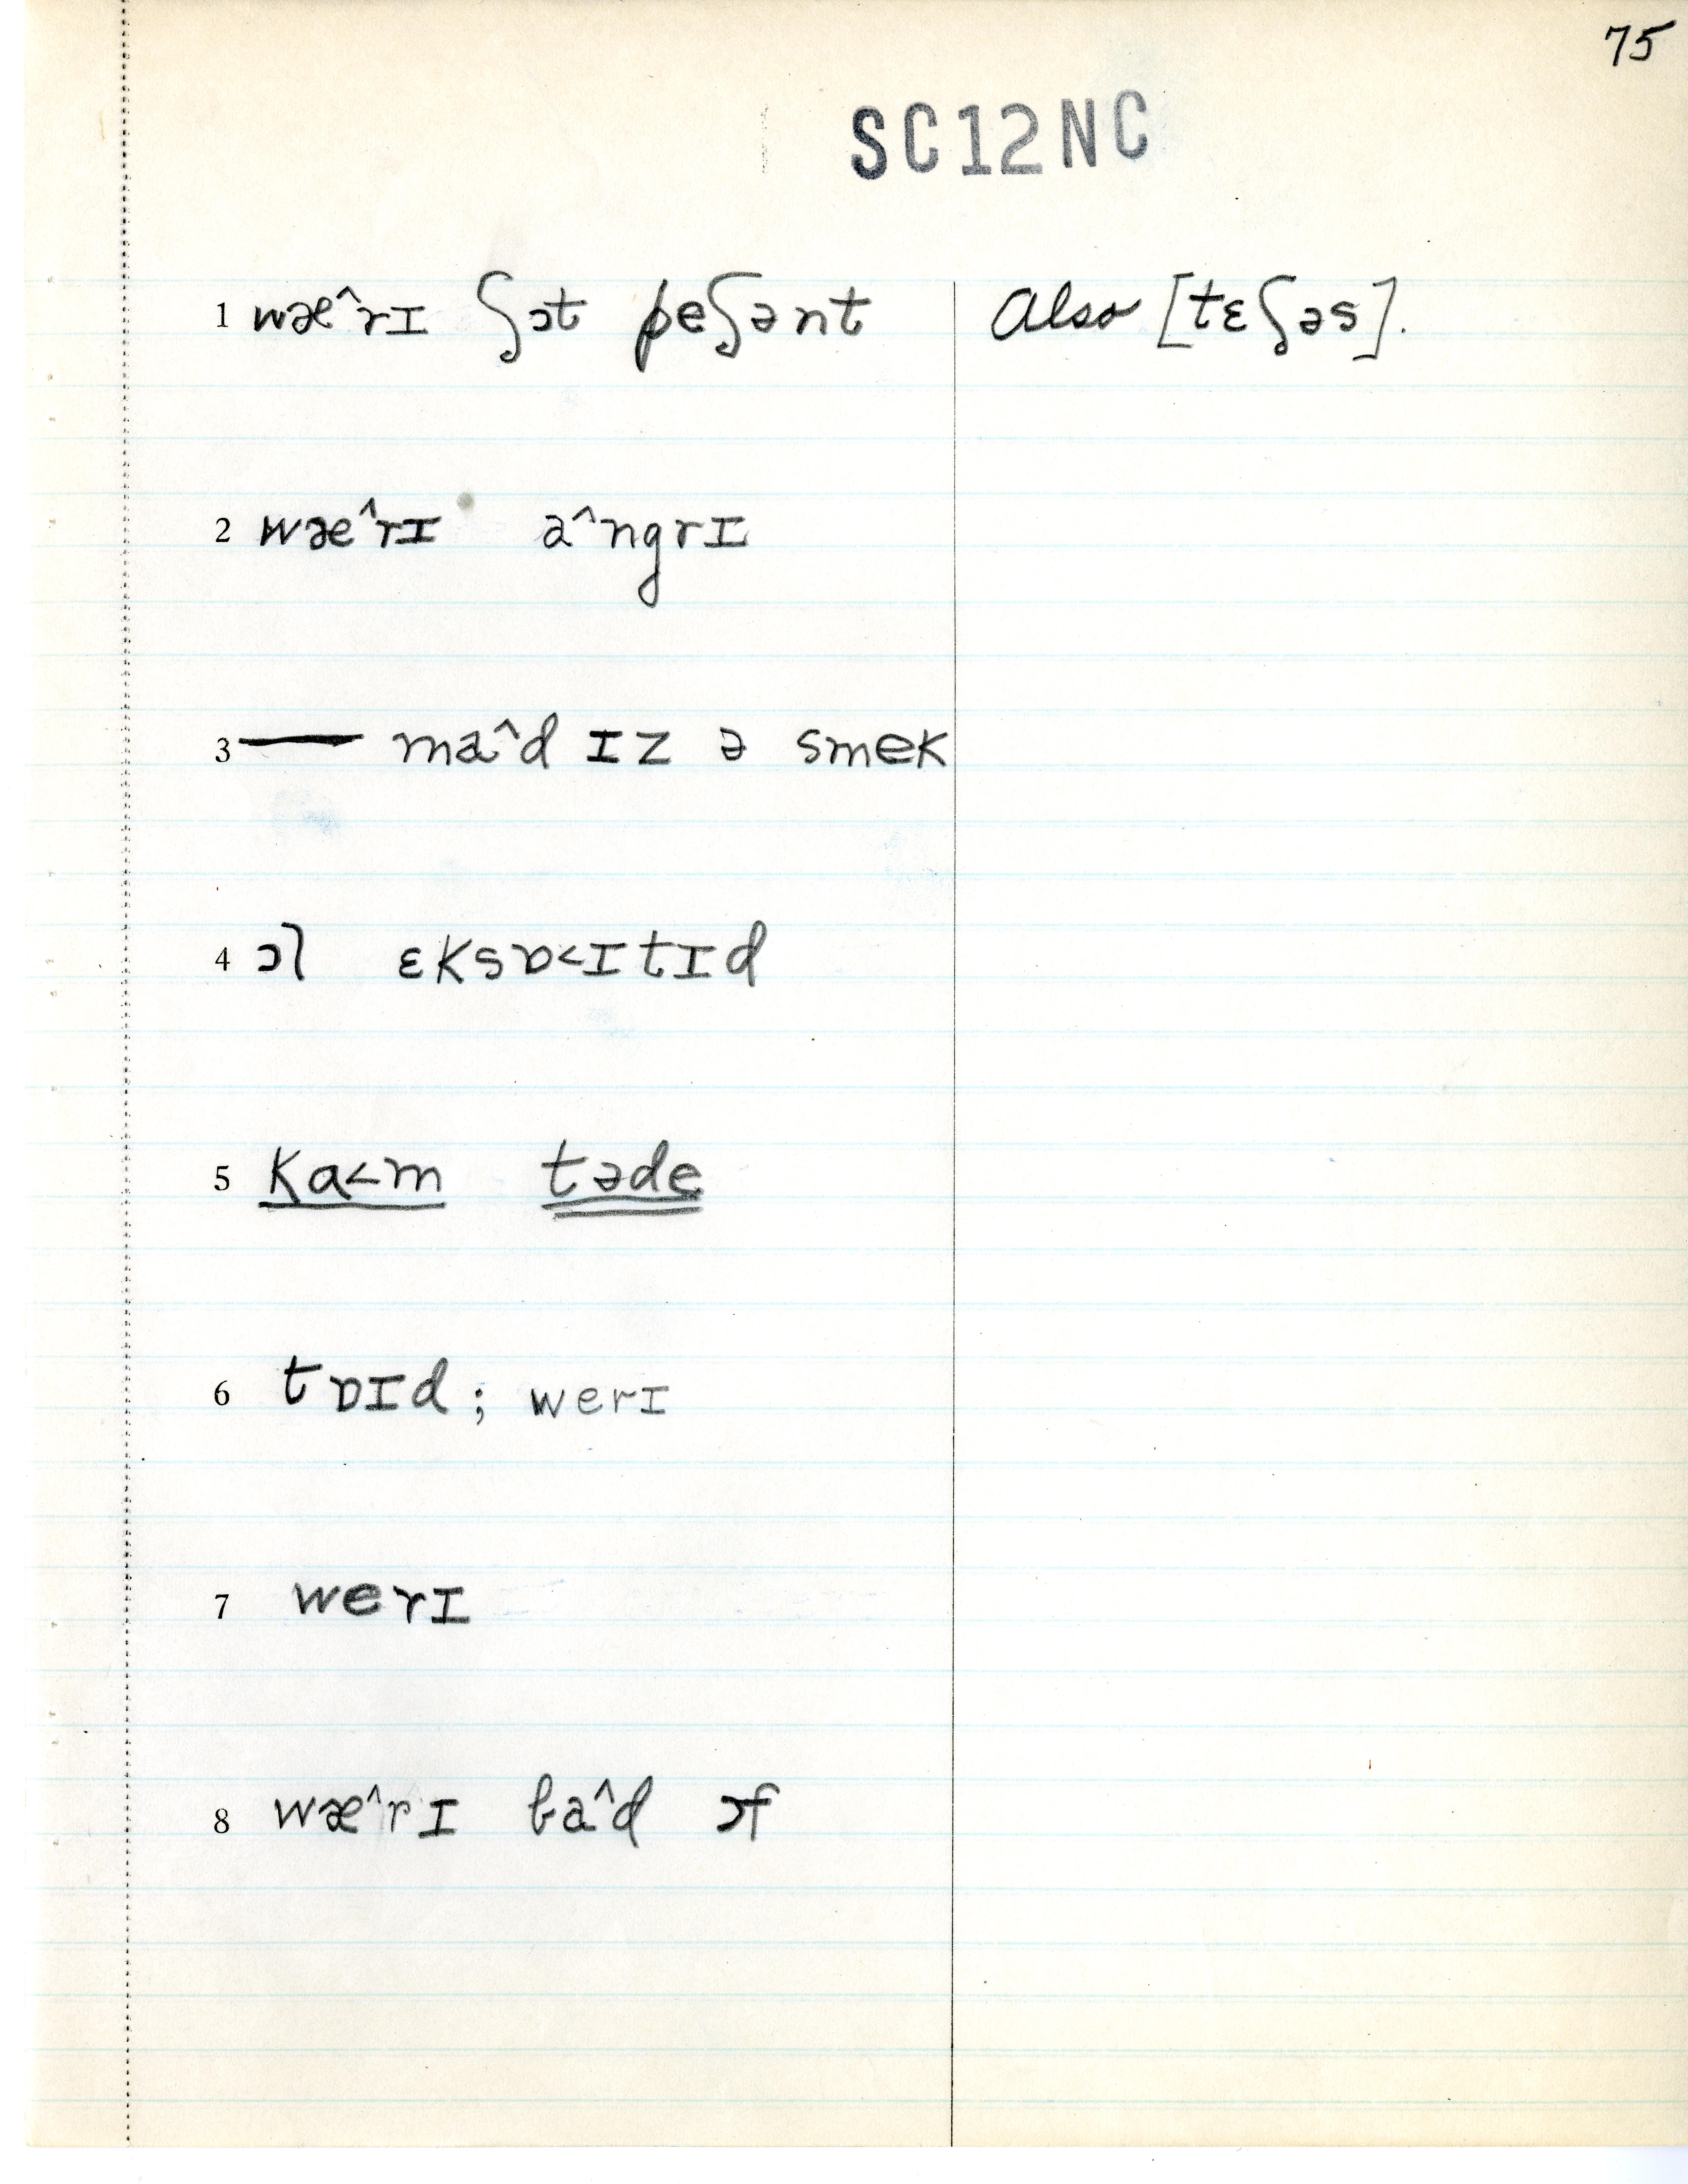 75
SC12NC
1 wæ^rɪ ʃɔt ɸeʃənt Also [tɛʃəs].
2 wæ^rɪ a^ngrɪ
3 — ma^d ɪz ə smek
4 ɔl ɛksɒ<ɪtɪd
5 ka<m təde
6 tɒɪd; werɪ
7 werɪ
8 wæ^rɪ ba^d ɔf